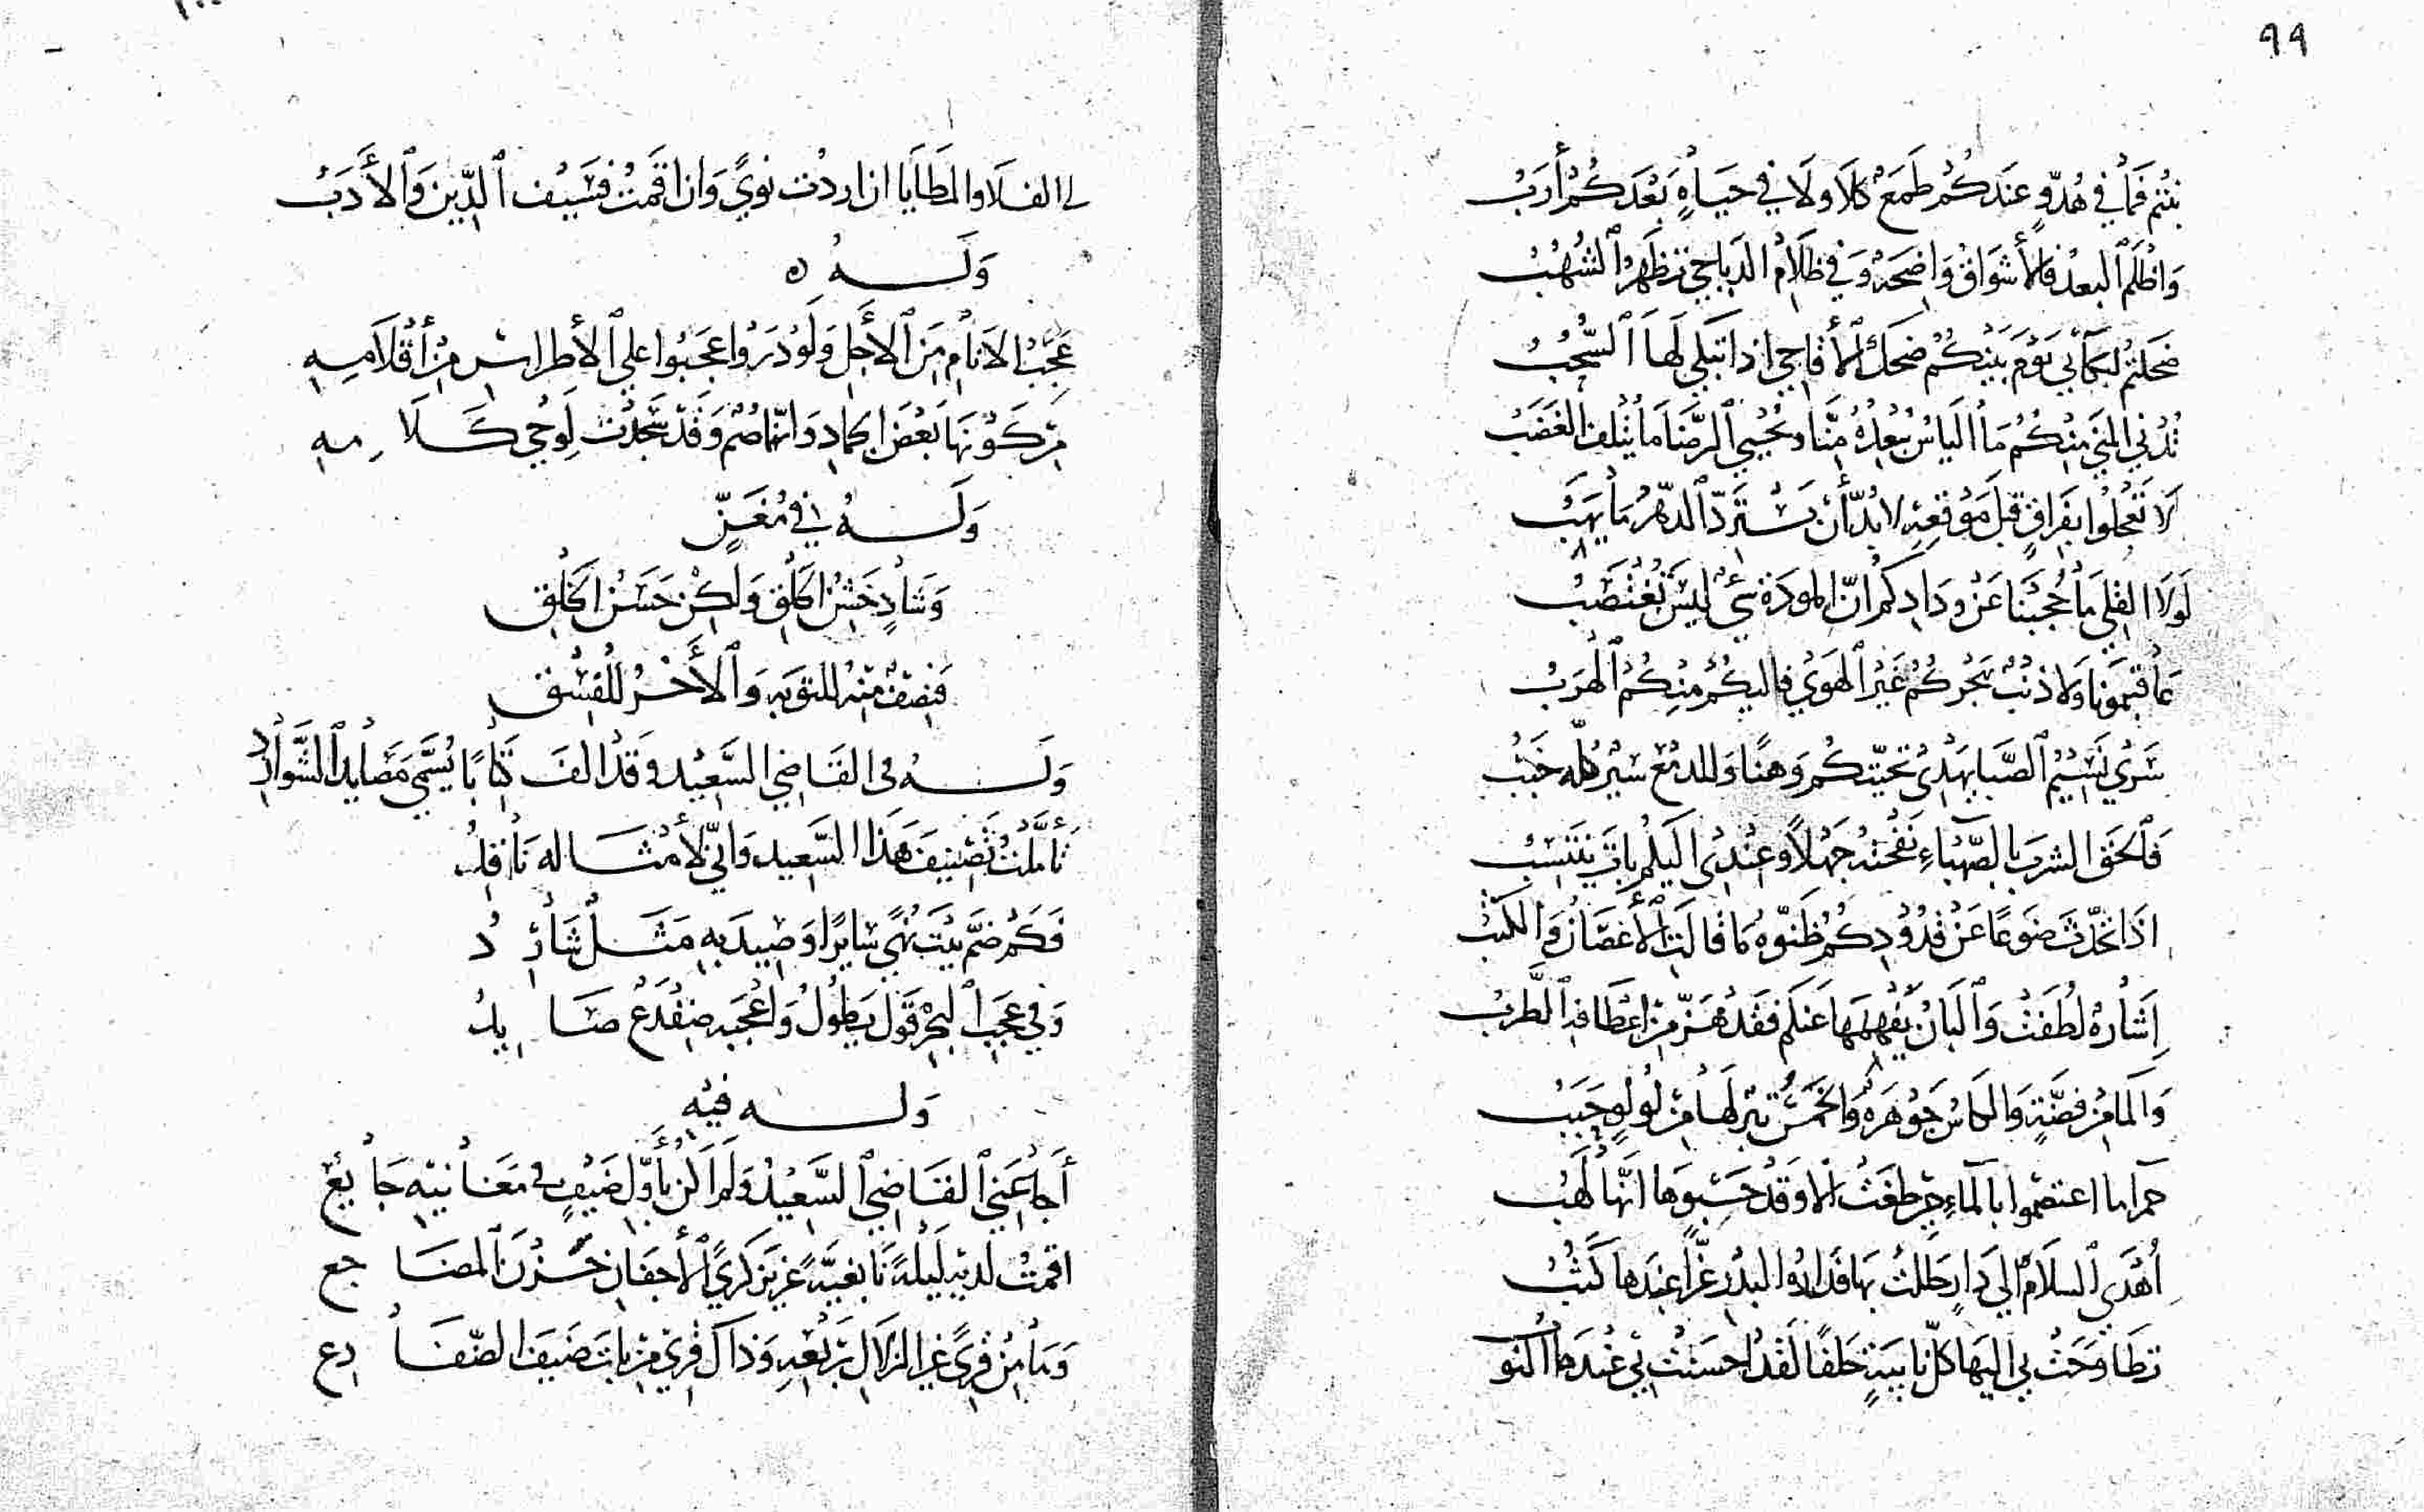 ٩٩
بنتم فما في هدوٍ عندكم طمع كلا ولا في حياةٍ بعدكم أرب
واظلم البعد فالأشواق واضحة وفي ظلام الدياجي تظهر الشهب
ضحكتم لبكائي يوم بينكم ضحك الأقاحي اذا تبكي لها السحب
تدني المني منكم ما الياس يبعده منا ويحيي الرضا ما يتلف الغضب
لا تعجلوا بفراقٍ قبل موقعه لا بد أن يسترد الدهر ما يهب
لولا القلي ما حجبنا عن ودادكم ان المودة شئ ليس تغتصب
عاقبتمونا ولا ذنب بحركم غير الهوي فاليكم منكم الهرب
سري نسيم الصبا يهدي تحيتكم وهنًا وللدمع سير كله خبب
فالحق الشرب بالصهباء نفحته جهلًا وعندي اليكم بات ينتسب
اذا تحدث ضوعًا عن قدودكم ظنوه ما قالت الأغصان والكثب
إشارة لطفت والبان يفهمها عنكم فقد هز من اعطافه الطرب
والما من فضةٍ والكاس جوهرة والخمر تبر لها من لولوٍ حبب
حمرا ما اعتصموا بالماء حين طغت الا وقد حسبوها انها لهب
أهدي السلام الي دارٍ حللت بها فدار البدر غرا عندها كثب
تطافحت بي اليها كل نابيةٍ حلفًا لقد احسنت بي عندها النوب
لي الفلا والمطايا ان اردت نويً وان اقمت فسيف الدين والأدب
وله ه
عجب الانام من الأجل ولو دروا عجبوا علي الأطراس من أقلامه
من كونها بعض الجماد وانها صم وقد سجدت لوحي كلامه
وله في مغنٍ
وشادٍ خشن الخلق ولكن حسن الخلق
فنصف منه للتوبه والأخر للفسق
وله في القاضي السعيد وقد الف كتابًا يسمي مصايد الشوارد
تأملت تصنيف هذا السعيد واني لأمثاله ناقد
فكم ضم بيت نهيً سايرًا وصيد به مثل شارد
وفي عجب البحر قول يطول واعجبه ضفدع صايد
وله فيه
أجاعني القاضي السعيد ولم اكن بأول ضيفٍ في مغانيه جايع
اقمت لديه ليلةً نابغيةً عزيز كري الأجفان حزن المضاجع
وما من قريً غير الزلال بربعه وذاك قري من بات ضيف الضفادع